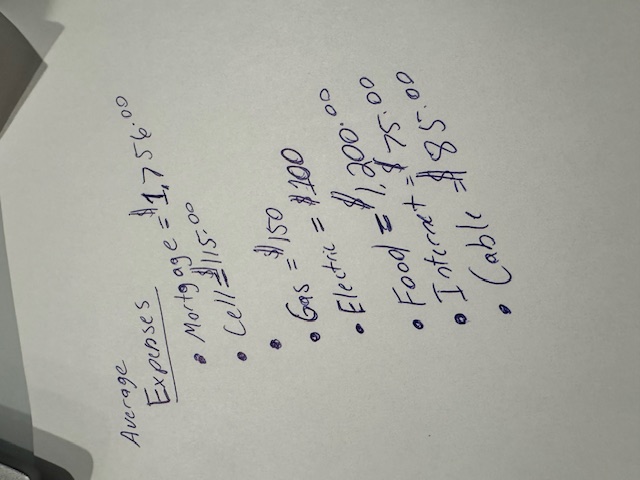 Average
Expenses
• Mortgage = $1,756.00
• Cell = $115.00
•
• Gas = $150
• Electric = $100
• Food = $1,200.00
• Internet = $75.00
• Cable = $85.00